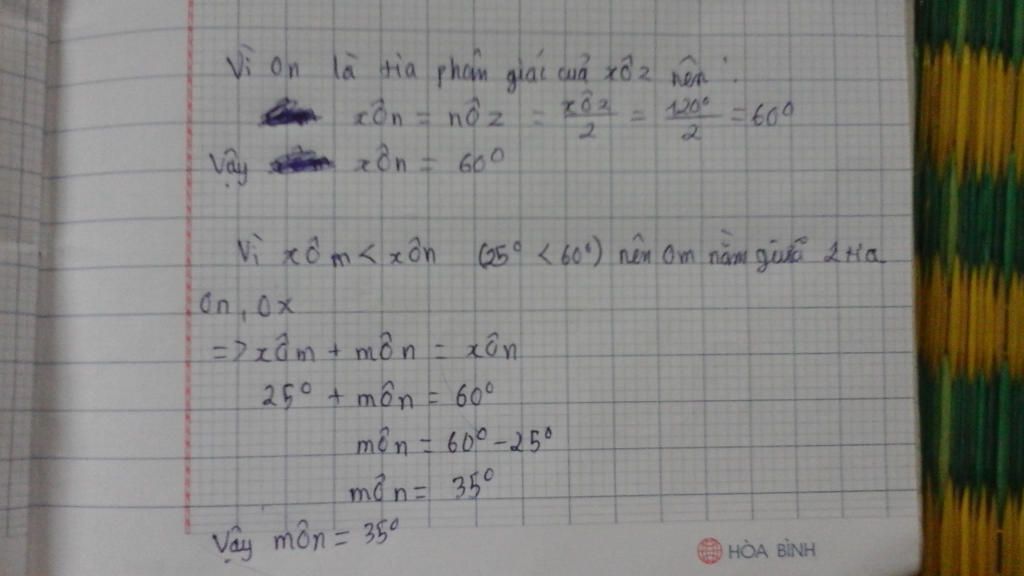 Vì On là tia phân giác cuả xÔz nên:
xÔn = nÔz = xÔz/2 = 120°/2 = 60°
Vậy xÔn = 60°
Vì xÔm < xÔn (25° < 60°) nên Om nằm giữa 2 tia
On, Ox
=> xÔm + mÔn = xÔn
25° + mÔn = 60°
mÔn = 60° - 25°
mÔn = 35°
Vậy mÔn = 35°
HÒA BÌNH